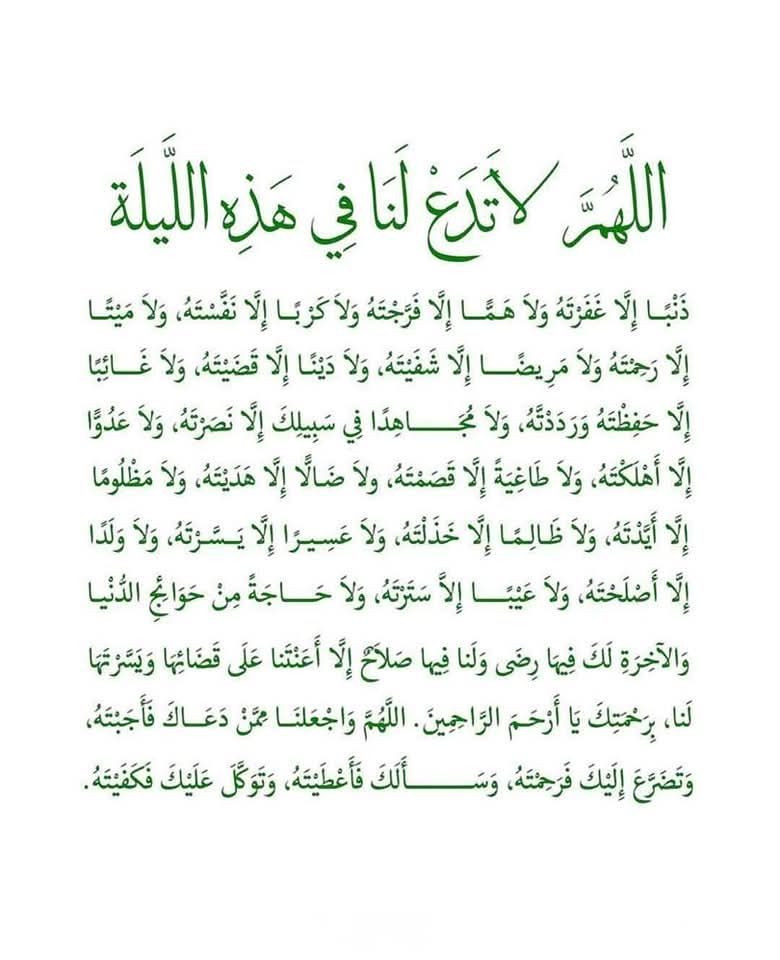 اللَّهُمَّ لاَ تَدَعْ لَنَا فِي هَذِهِ اللَّيلَة
ذَنْبًا إِلَّا غَفَرْتَهُ وَلاَ هَمًّا إِلَّا فَرَّجْتَهُ وَلاَ كَرْبًا إِلَّا نَفَّسْتَهُ، وَلاَ مَيْتًا
إِلَّا رَحِمْتَهُ وَلاَ مَرِيضًا إِلَّا شَفَيْتَهُ، وَلاَ دَيْنًا إِلَّا قَضَيْتَهُ، وَلاَ غَائِبًا
إِلَّا حَفِظْتَهُ وَرَدَدْتَّهُ، وَلاَ مُجَاهِدًا فِي سَبِيلِكَ إِلَّا نَصَرْتَهُ، وَلاَ عَدُوًّا
إِلَّا أَهْلَكْتَهُ، وَلاَ طَاغِيَةً إِلَّا قَصَمْتَهُ، ولاَ ضَالًّا إِلَّا هَدَيْتَهُ، وَلاَ مَظْلُومًا
إِلَّا أَيَّدْتَهُ، وَلاَ ظَالِمًا إِلَّا خَذَلْتَهُ، وَلاَ عَسِيرًا إِلَّا يَسَّرْتَهُ، وَلاَ وَلَدًا
إِلَّا أَصْلَحْتَهُ، وَلاَ عَيْبًا إِلاَّ سَتَرْتَهُ، وَلاَ حَاجَةً مِنْ حَوَائِجِ الدُّنْيا
وَالآخِرَةِ لَكَ فِيهَا رِضَى وَلَنا فِيها صَلاَحٌ إِلَّا أَعَنْتَنا عَلَى قَضَائِهَا وَيَسَّرْتَهَا
لَنا، بِرَحْمَتِكَ يَا أَرْحَمَ الرَّاحِمِينَ. اللَّهُمَّ وَاجْعَلنَا مِمَّنْ دَعَاكَ فَأَجَبْتَهُ،
وَتَضَرَّعَ إِلَيْكَ فَرَحِمْتَهُ، وَسَأَلَكَ فَأَعْطَيْتَهُ، وَتَوَكَّلَ عَلَيْكَ فَكَفَيْتَهُ.